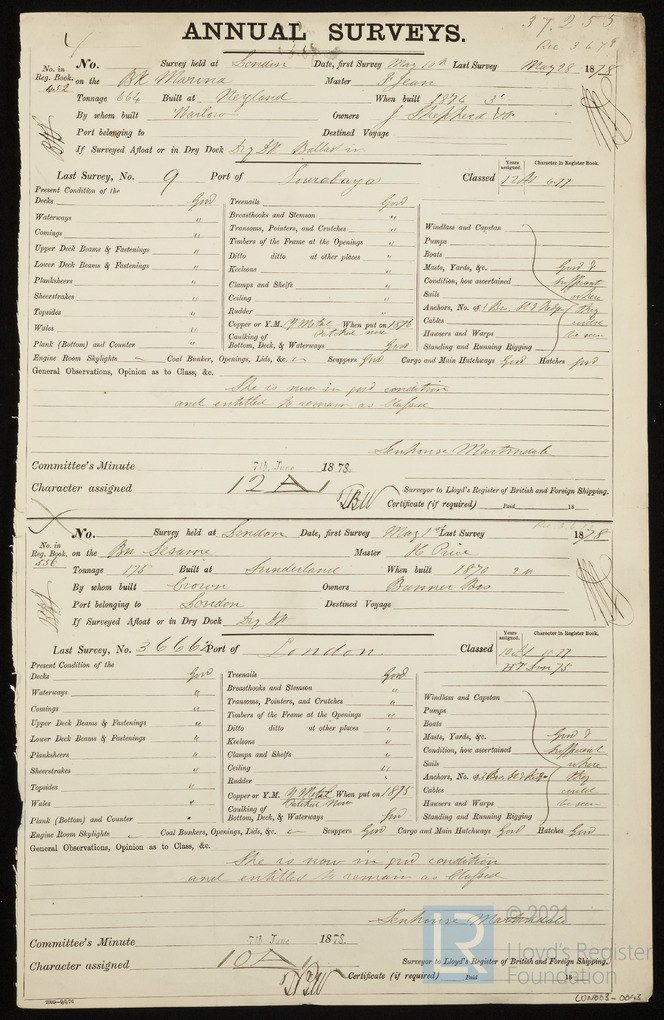 37,255
ANNUAL SURVEYS.
Rec 3 6 78
No. Survey held at London Date, first Survey May 10th Last Survey May 28 1878
No. in Reg. Book. 452 on the Bk Marina Master
Tonnage 664 Built at Neyland When built 1876 3
By whom built Warlow Owners J Shepherd & Co
Port belonging to Destined Voyage
If Surveyed Afloat or in Dry Dock Dry Dk Ballast in
Last Survey, No. 9 Port of Sourabaya Classed
Years assigned. Character in Register Book.
12 A1 6.77
Present Condition of the
Decks Good
Waterways "
Comings "
Upper Deck Beams & Fastenings "
Lower Deck Beams & Fastenings "
Planksheers "
Sheerstrakes "
Topsides "
Wales "
Plank (Bottom) and Counter "
Treenails Good
Breasthooks and Stemson "
Transoms, Pointers, and Crutches "
Timbers of the Frame at the Openings "
Ditto ditto at other places "
Keelsons "
Clamps and Shelfs "
Ceiling "
Rudder "
Copper or Y.M. Y Metal When put on 1876
Caulking of Bottom, Deck, & Waterways Good
Windlass and Capstan
Pumps
Boats
Masts, Yards, &c. Good &
Condition, how ascertained sufficient
Sails where
Anchors, No. of they
Cables could
Hawsers and Warps be seen
Standing and Running Rigging
Engine Room Skylights Coal Bunker, Openings, Lids, &c. Scuppers Good Cargo and Main Hatchways Good Hatches Good
General Observations, Opinion as to Class, &c.
She is now in good condition
and entitled to remain as Classed
Senhouse Martindale
Committee's Minute 7th June 1878.
Character assigned 12 A 1
Surveyor to Lloyd's Register of British and Foreign Shipping.
Certificate (if required) Paid 18
Rec 3 6 78
No. Survey held at London Date, first Survey May 1st Last Survey 1878
No. in Reg. Book. 556 on the Bn Sesame Master H Price
Tonnage 175 Built at Sunderland When built 1870 2
By whom built Crown Owners Banner Bros
Port belonging to London Destined Voyage
If Surveyed Afloat or in Dry Dock Dry Dk
Last Survey, No. 36662 Port of London. Classed
Years assigned. Character in Register Book.
10 A1 4.77
Present Condition of the
Decks Good
Waterways "
Comings "
Upper Deck Beams & Fastenings "
Lower Deck Beams & Fastenings "
Planksheers "
Sheerstrakes "
Topsides "
Wales "
Plank (Bottom) and Counter "
Treenails Good
Breasthooks and Stemson "
Transoms, Pointers, and Crutches "
Timbers of the Frame at the Openings "
Ditto ditto at other places "
Keelsons "
Clamps and Shelfs "
Ceiling "
Rudder "
Copper or Y.M. Y Metal When put on 1875
Caulking of Bottom, Deck, & Waterways Good
Windlass and Capstan
Pumps
Boats
Masts, Yards, &c. Good &
Condition, how ascertained sufficient
Sails where
Anchors, No. of they
Cables could
Hawsers and Warps be seen
Standing and Running Rigging
Engine Room Skylights Coal Bunkers, Openings, Lids, &c. Scuppers Good Cargo and Main Hatchways Good Hatches Good
General Observations, Opinion as to Class, &c.
She is now in good condition
and entitled to remain as Classed
Senhouse Martindale
Committee's Minute 7th June 1878.
Character assigned 10 A 1
Surveyor to Lloyd's Register of British and Foreign Shipping.
Certificate (if required) Paid 18
LR © 2021
Lloyd's Register
Foundation
LON003-0043